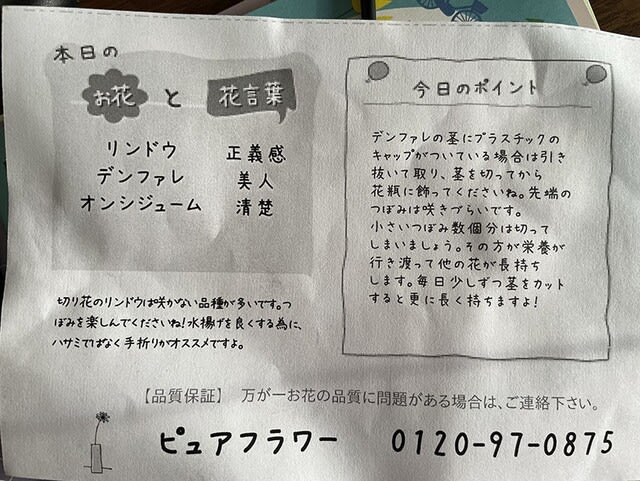 本日の
お花 と 花言葉
リンドウ 正義感
デンファレ 美人
オンシジューム 清楚
切り花のリンドウは咲かない品種が多いです。つ
ぼみを楽しんでくださいね!水揚げを良くする為に、
ハサミではなく手折りがオススメですよ。
今日のポイント
デンファレの茎にプラスチックの
キャップがついている場合は引き
抜いて取り、茎を切ってから
花瓶に飾ってくださいね。先端の
つぼみは咲きづらいです。
小さいつぼみ数個分は切って
しまいましょう。その方が栄養が
行き渡って他の花が長持ち
します。毎日少しずつ茎をカット
すると更に長く持ちますよ!
【品質保証】 万が一お花の品質に問題がある場合は、ご連絡下さい。
ピュアフラワー 0120-97-0875